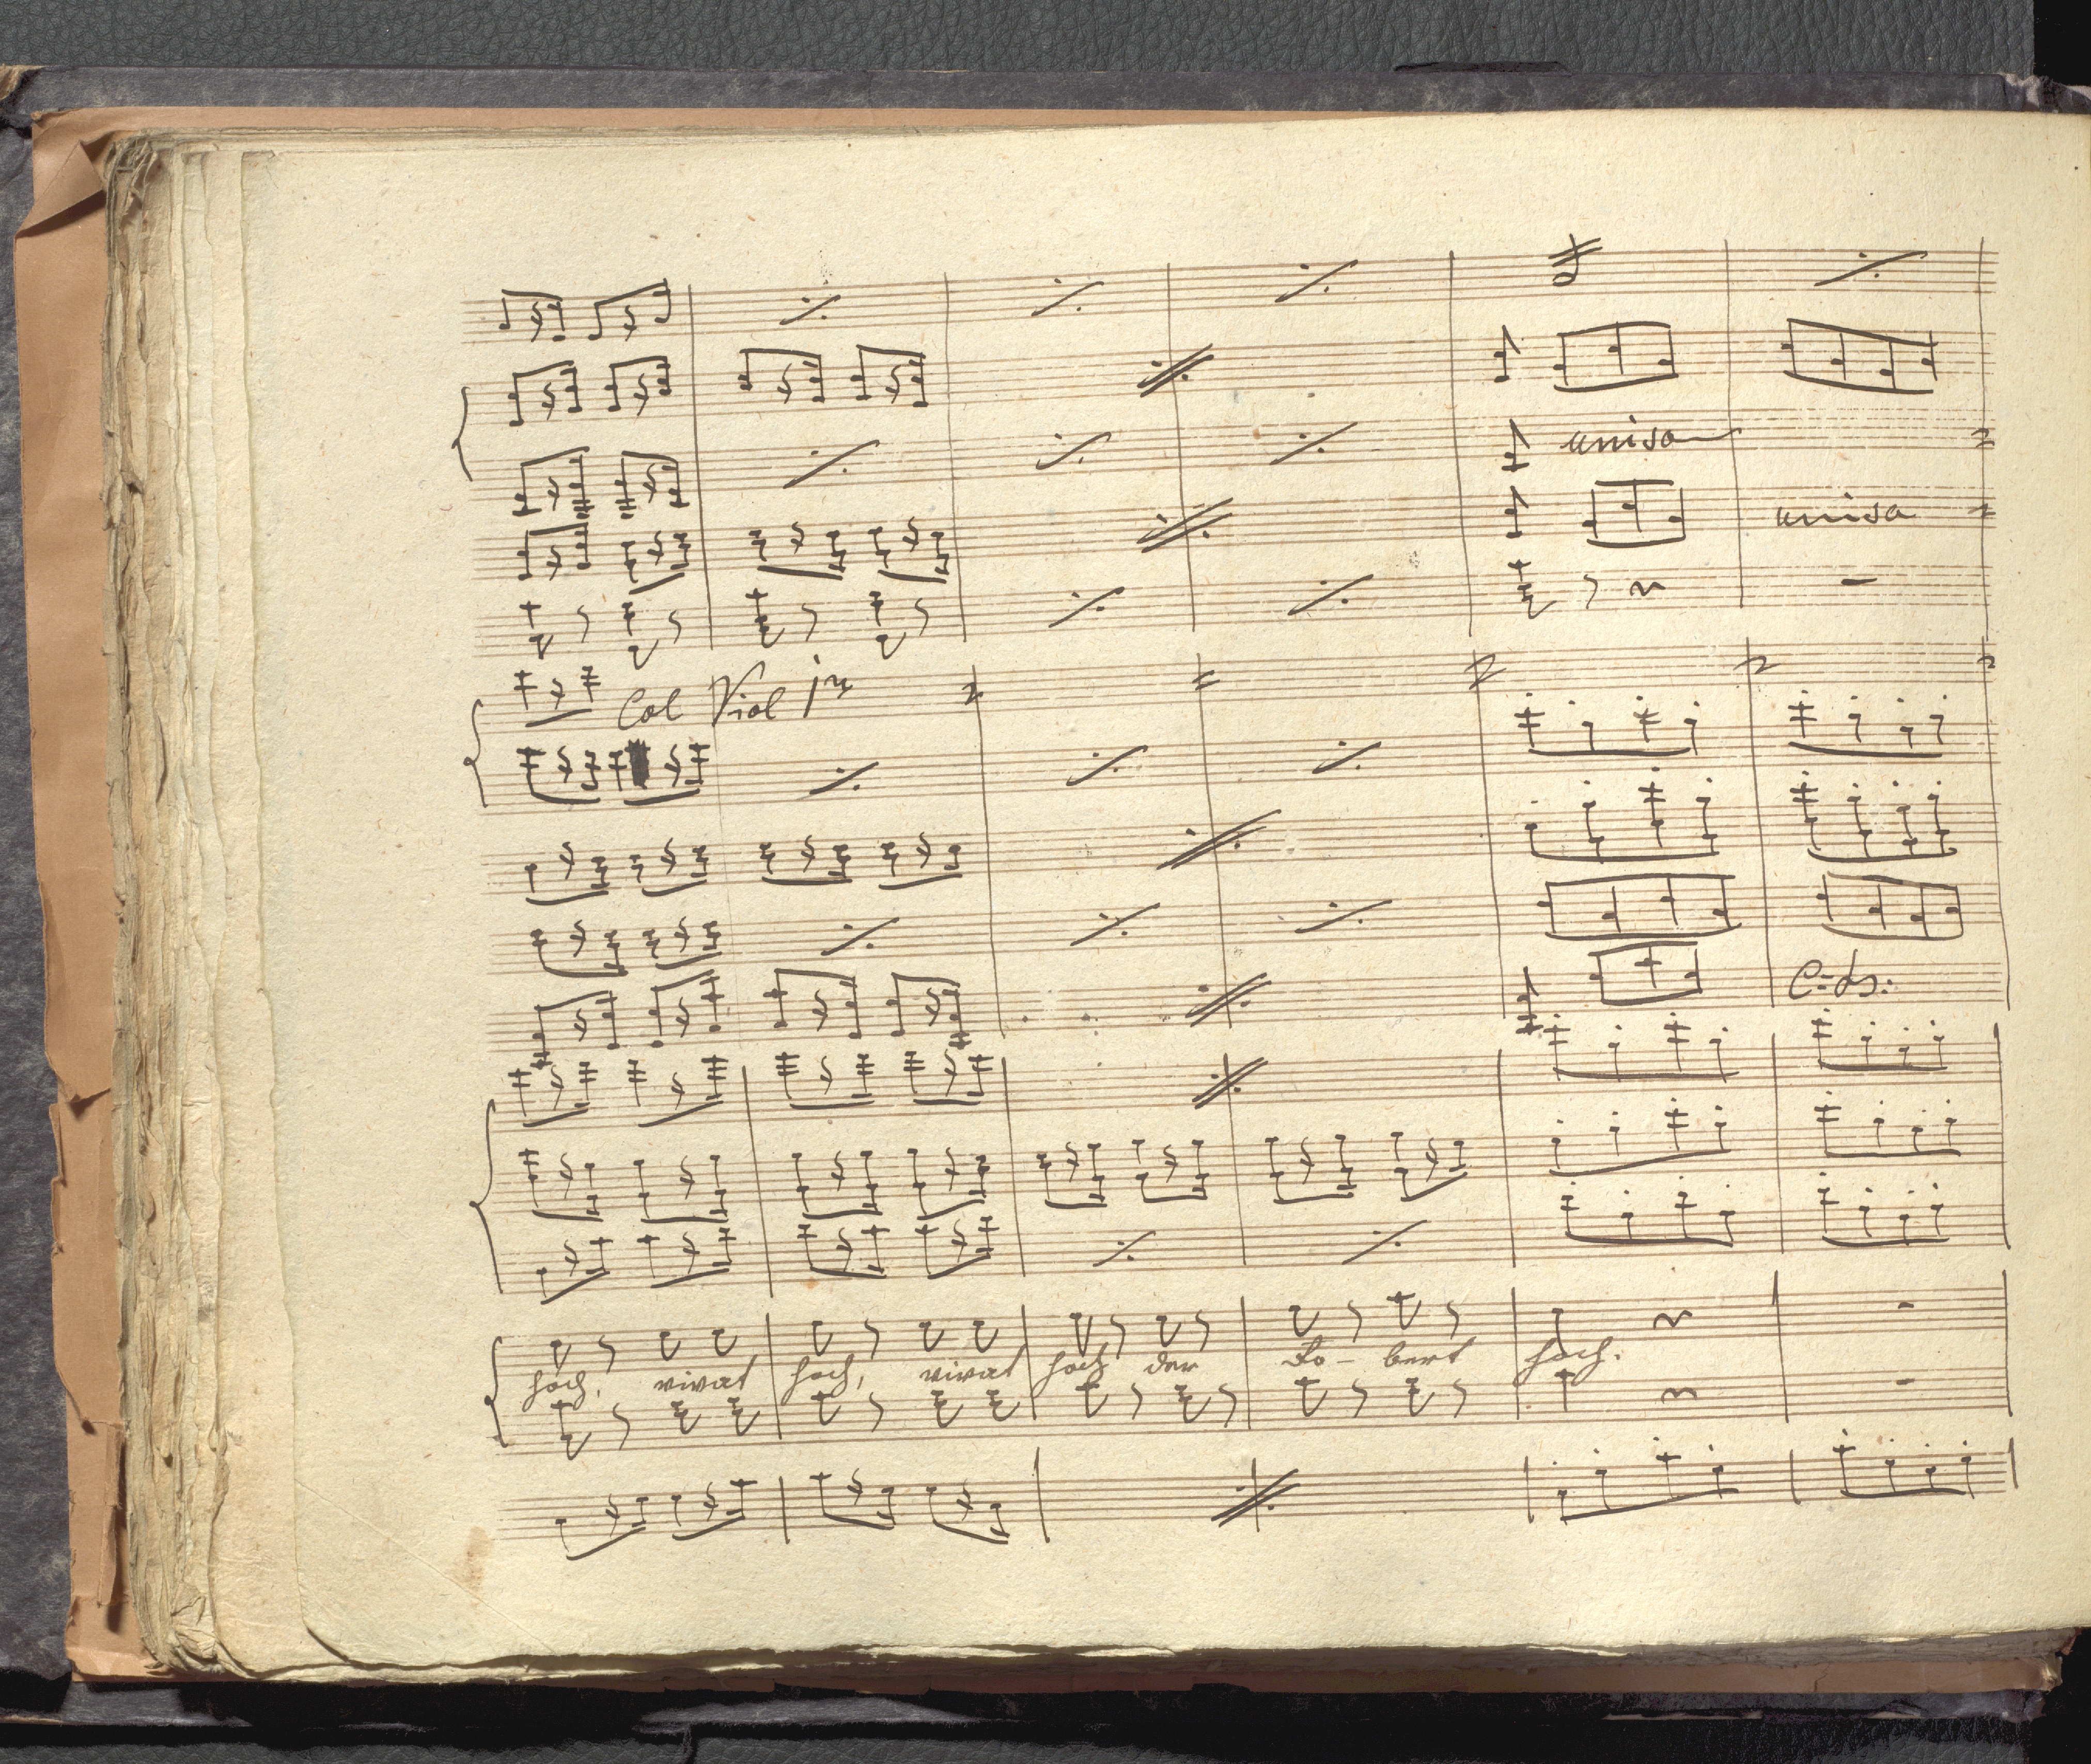 uniso
unisa
Col Viol 1mo
C: B:
hoch, vivat hoch, vivat hoch der Ro- bert hoch.